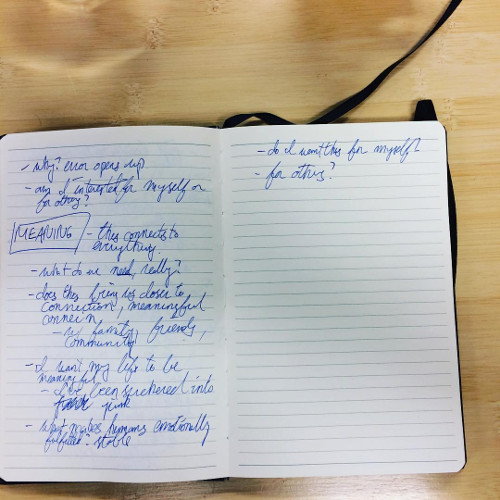 - why? error opens up
- am I interested for myself or
for others?
MEANING - this connects to
everything
- what do we need, really?
- does this bring us closer to
connection, meaningful
- w family, friends,
community
- I want my life to be
meaningful
- I've been suckered into
junk
- what makes humans emotionally
fulfilled? stable
- do I want this for myself?
- for others?